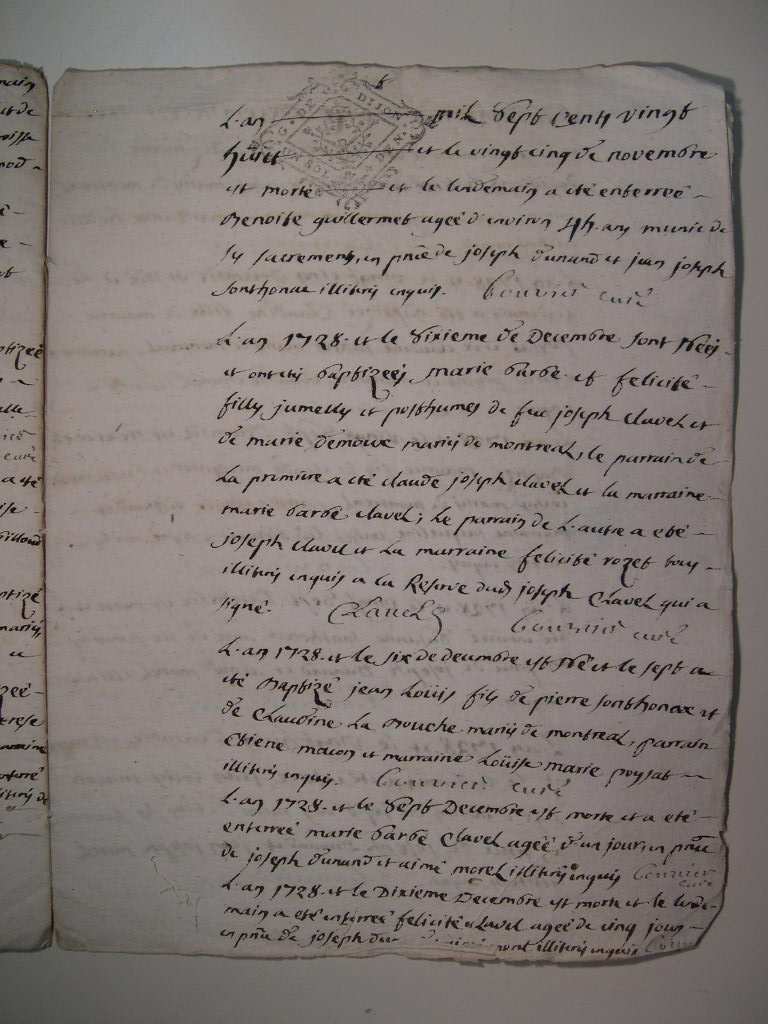 L'an mil sept cents vingt
huict et le vingt cinq de novembre
est morte et le lendemain a été enterreé
Benoite guillermet ageé d'environ ans munie de
sacrements, en pnce de joseph dunand et jean joseph
sonthonax illiteris enquis. Bouvier curé
L'an 1728. et le sixieme de Decembre sont neés
et ont etés baptizeés marie barbe et felicité
filles jumelles et posthumes de feu joseph clavel et
de marie mariés de montreal, le parrain de
la premiere a eté claude joseph clavel et la marraine
marie barbe clavel; le parrain de l'autre a eté
joseph clavel et la marraine felicité rozet tous
illiteris enquis a la Reserve dud joseph Clavel qui a
signé. Clavel Bouvier curé
L'an 1728. et le six de decembre est Né et le sept a
eté Baptizé jean Louis fils de pierre sonthonax et
de Claudine La Bouche mariés de montreal, parrain
Etiene macon et marraine Louise marie poysat
illiteris enquis. Bouvier curé
L'an 1728. et le sept Decembre est morte et a eté
enterreé marie barbe Clavel ageé d'un jour, en pnce
de joseph dunand et aimé morel illiteris enquis Bouvier
curé
L'an 1728 et le Dixieme Decembre est morte et le lende-
main a eté enterreé felicité Clavel ageé de cinq jours
en pnce de joseph illiteris enquis